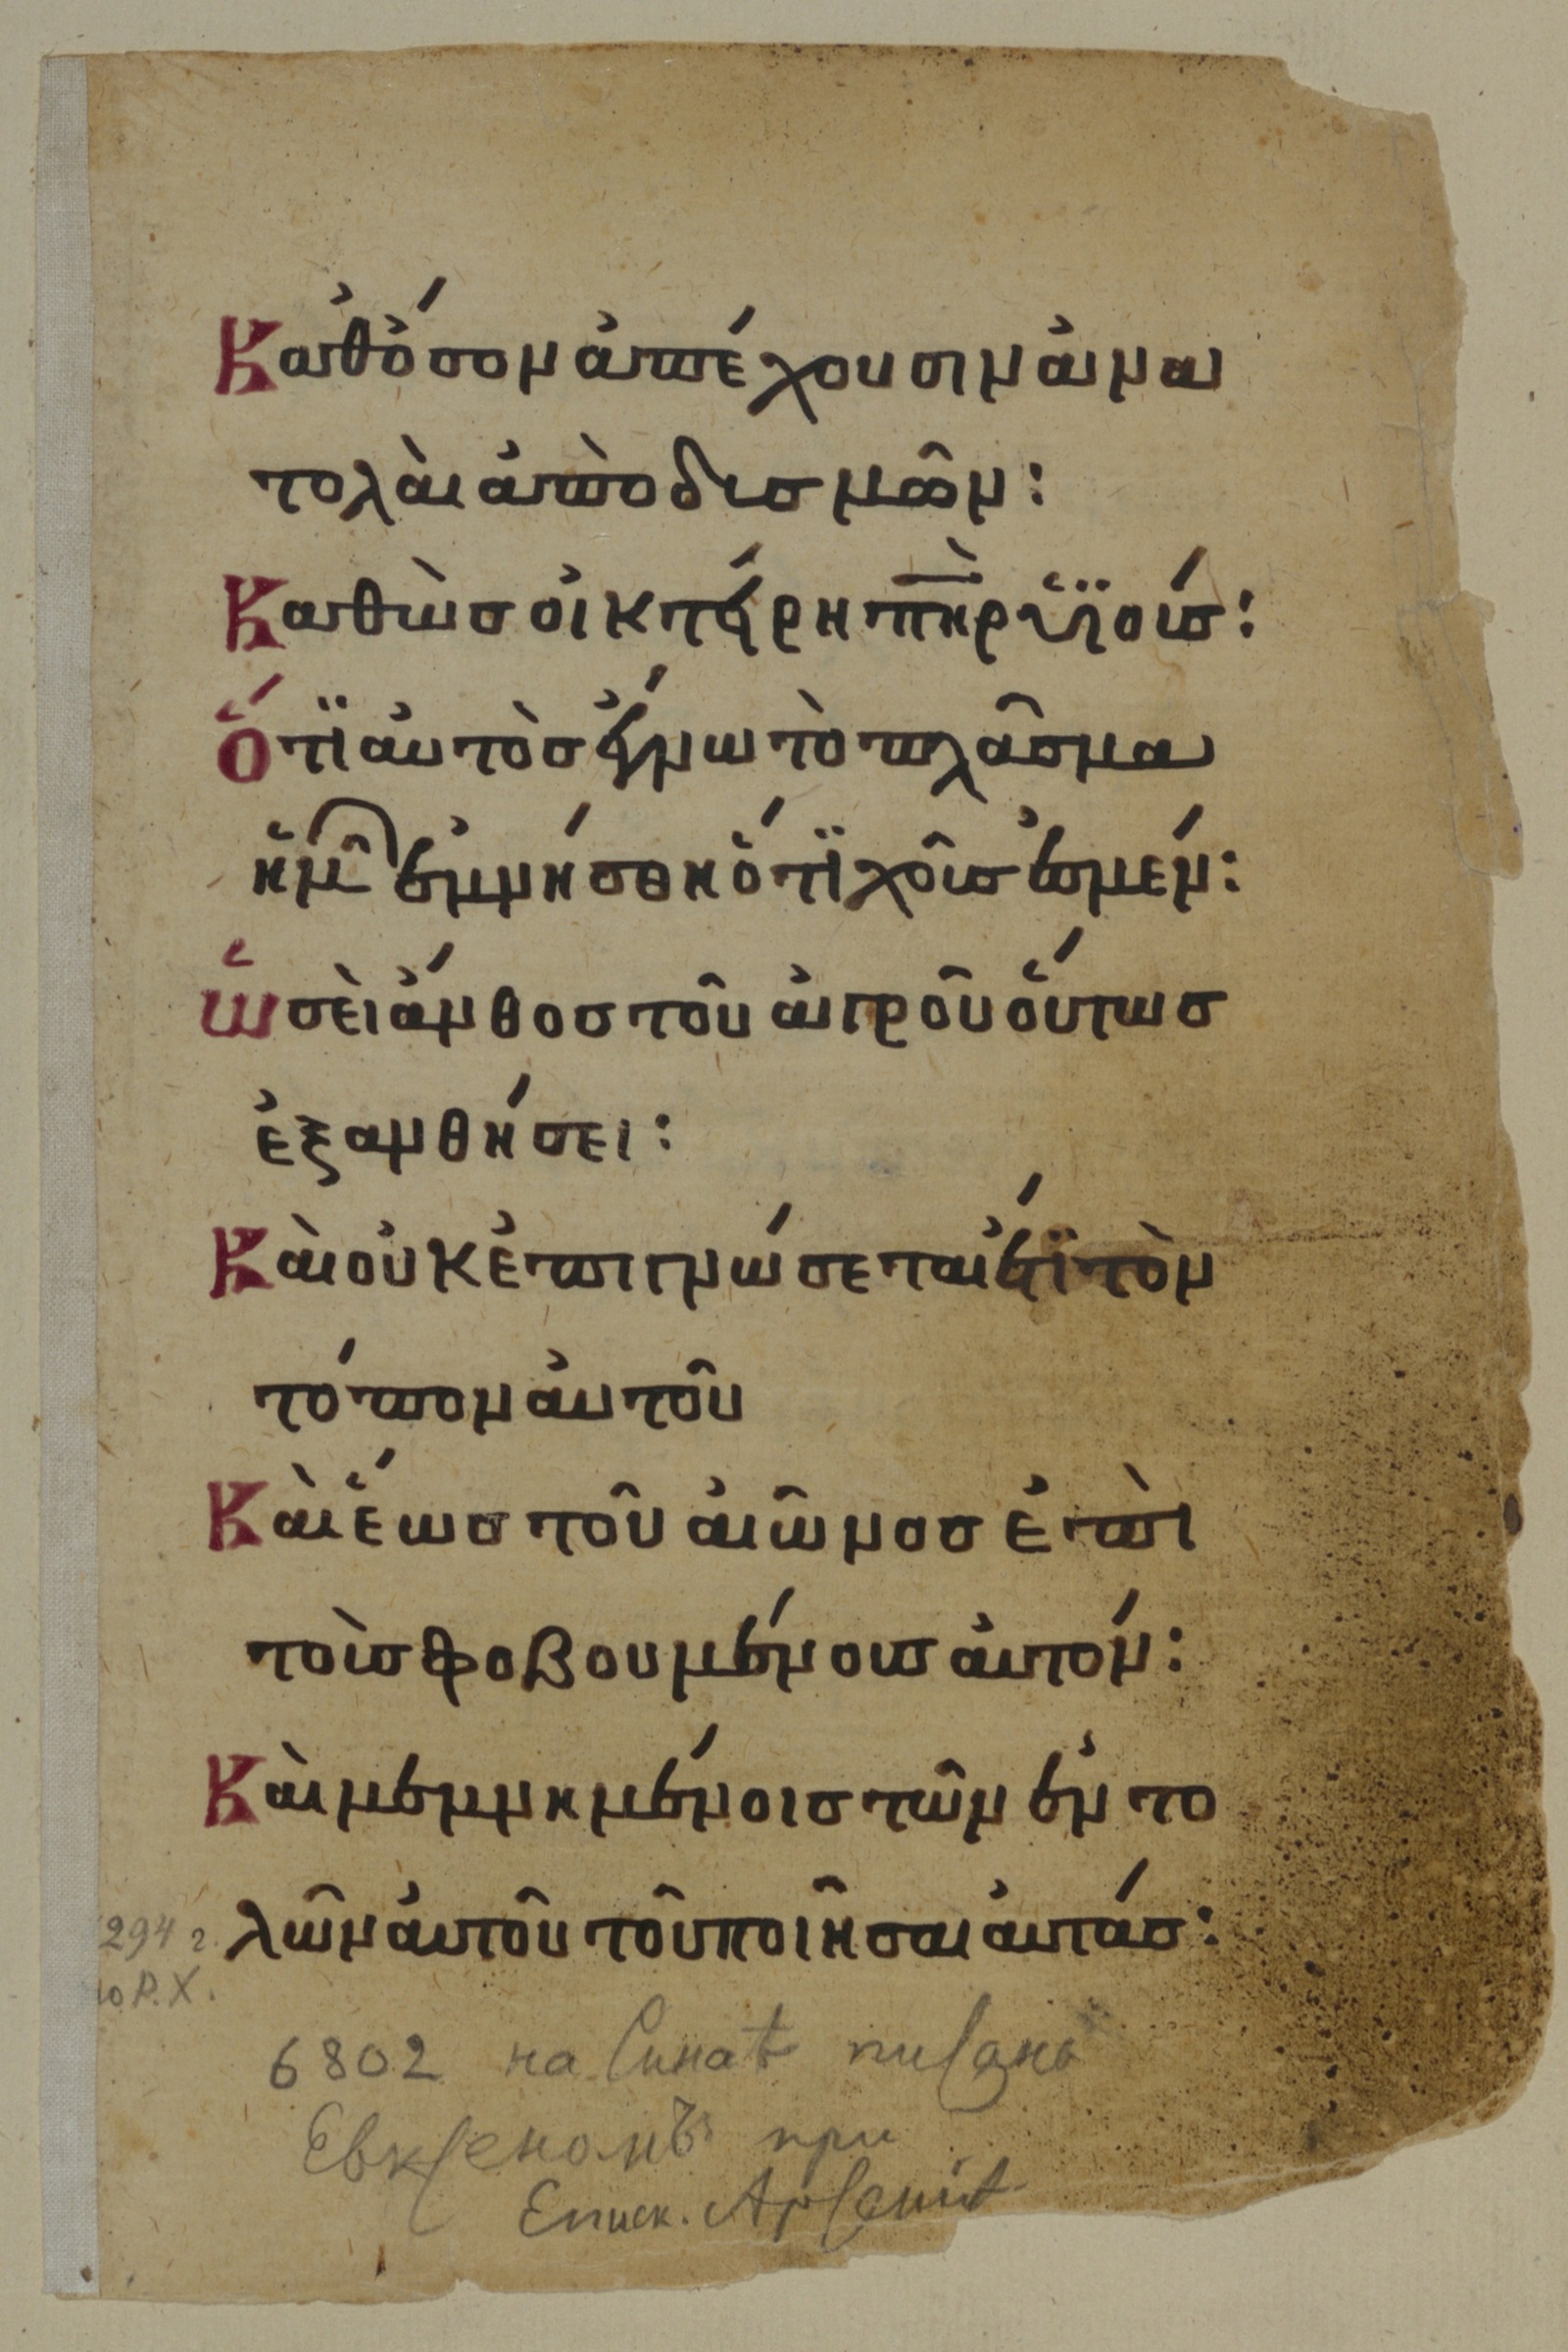 Καθόσον ἀπέχουσιν ἀνα
τολαὶ ἀπὸ δισμῶν:
Καθὼσ οἰκτείρη πὴρ υἱοίσ:
Ὅτϊ ἀυτὸσ ἔγνω τὸ πλᾶσμα
ἡμῶ ἐμνήσθη ὅτϊ χοῦσ ἐσμέν:
Ὡσεὶ ἄνθοσ τοῦ ἀγροῦ ὅυτωσ
ἐξανθήσει:
Καὶ οὐκ ἐπιγνώσεται ἔτϊ τὸν
τόπον ἀυτοῦ
Καὶ ἕωσ τοῦ αἰῶνοσ ἐπὶ
τοὶσ φοβουμένοισ ἀυτόν:
Καὶ μεμνημένοισ τῶν ἐν το
λῶν ἀυτοῦ τοῦ ποιῆσαι ἀυτάσ:
294 г.
по Р. Х.
6802 на Синаѣ писано
Евксеномъ при
Еписк. Арсеніѣ